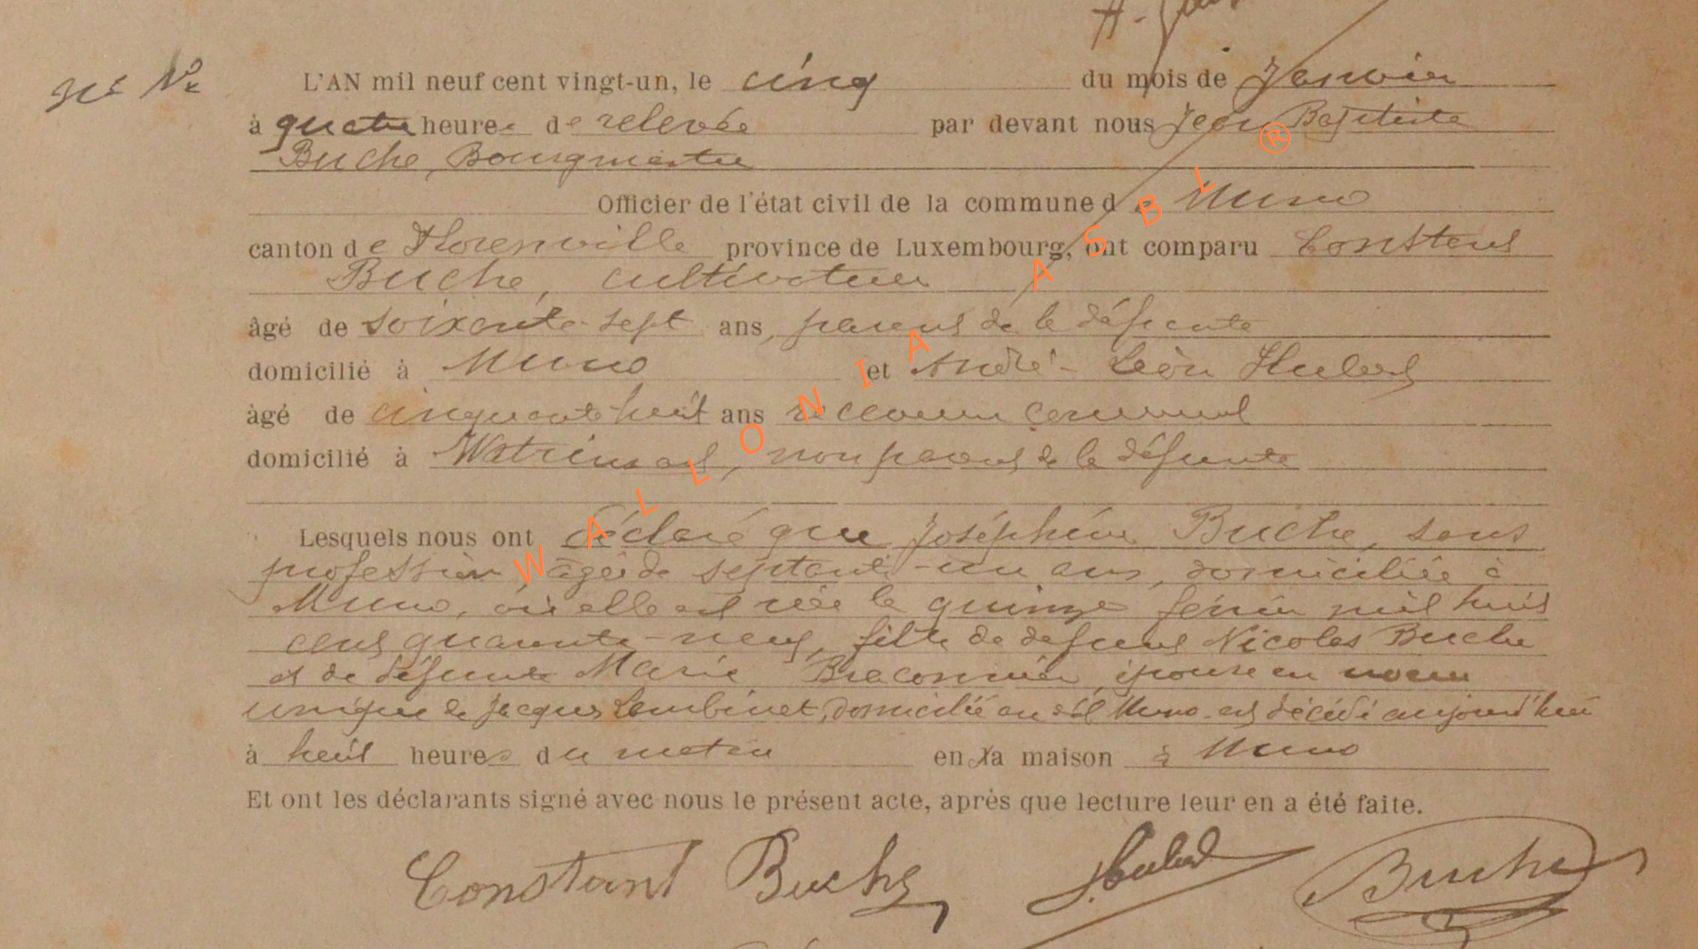 L'AN mil neuf cent vingt-un, le cinq du mois de Janvier
à quatre heures de relevée par devant nous Jean Baptiste
Buche, Bourgmestre
Officier de l'état civil de la commune de Muno
canton de Florenville province de Luxembourg, ont comparu Constant
Buche, cultivateur
âgé de soixante-sept ans, parent de la défunte
domicilié à Muno et André-Léon Hubert
âgé de cinquante huit ans receveur communal
domicilié à Watrinsart, non parent de la défunte
Lesquels nous ont déclaré que Joséphine Buche, sans
profession, âgée de septante-un ans, domiciliée à
Muno, où elle est née le quinze février mil huit
cent quarante-neuf, fille de defunt Nicolas Buche
et de défunte Marie Braconnier, épouse en
unique de Jacques Lambinet, domicilié au dit Muno est décédé aujourd'hui
à huit heures du matin en sa maison à Muno
Et ont les déclarants signé avec nous le présent acte, après que lecture leur en a été faite.
Constant Buche Hubert Buche
WALLONIA ASBL ®